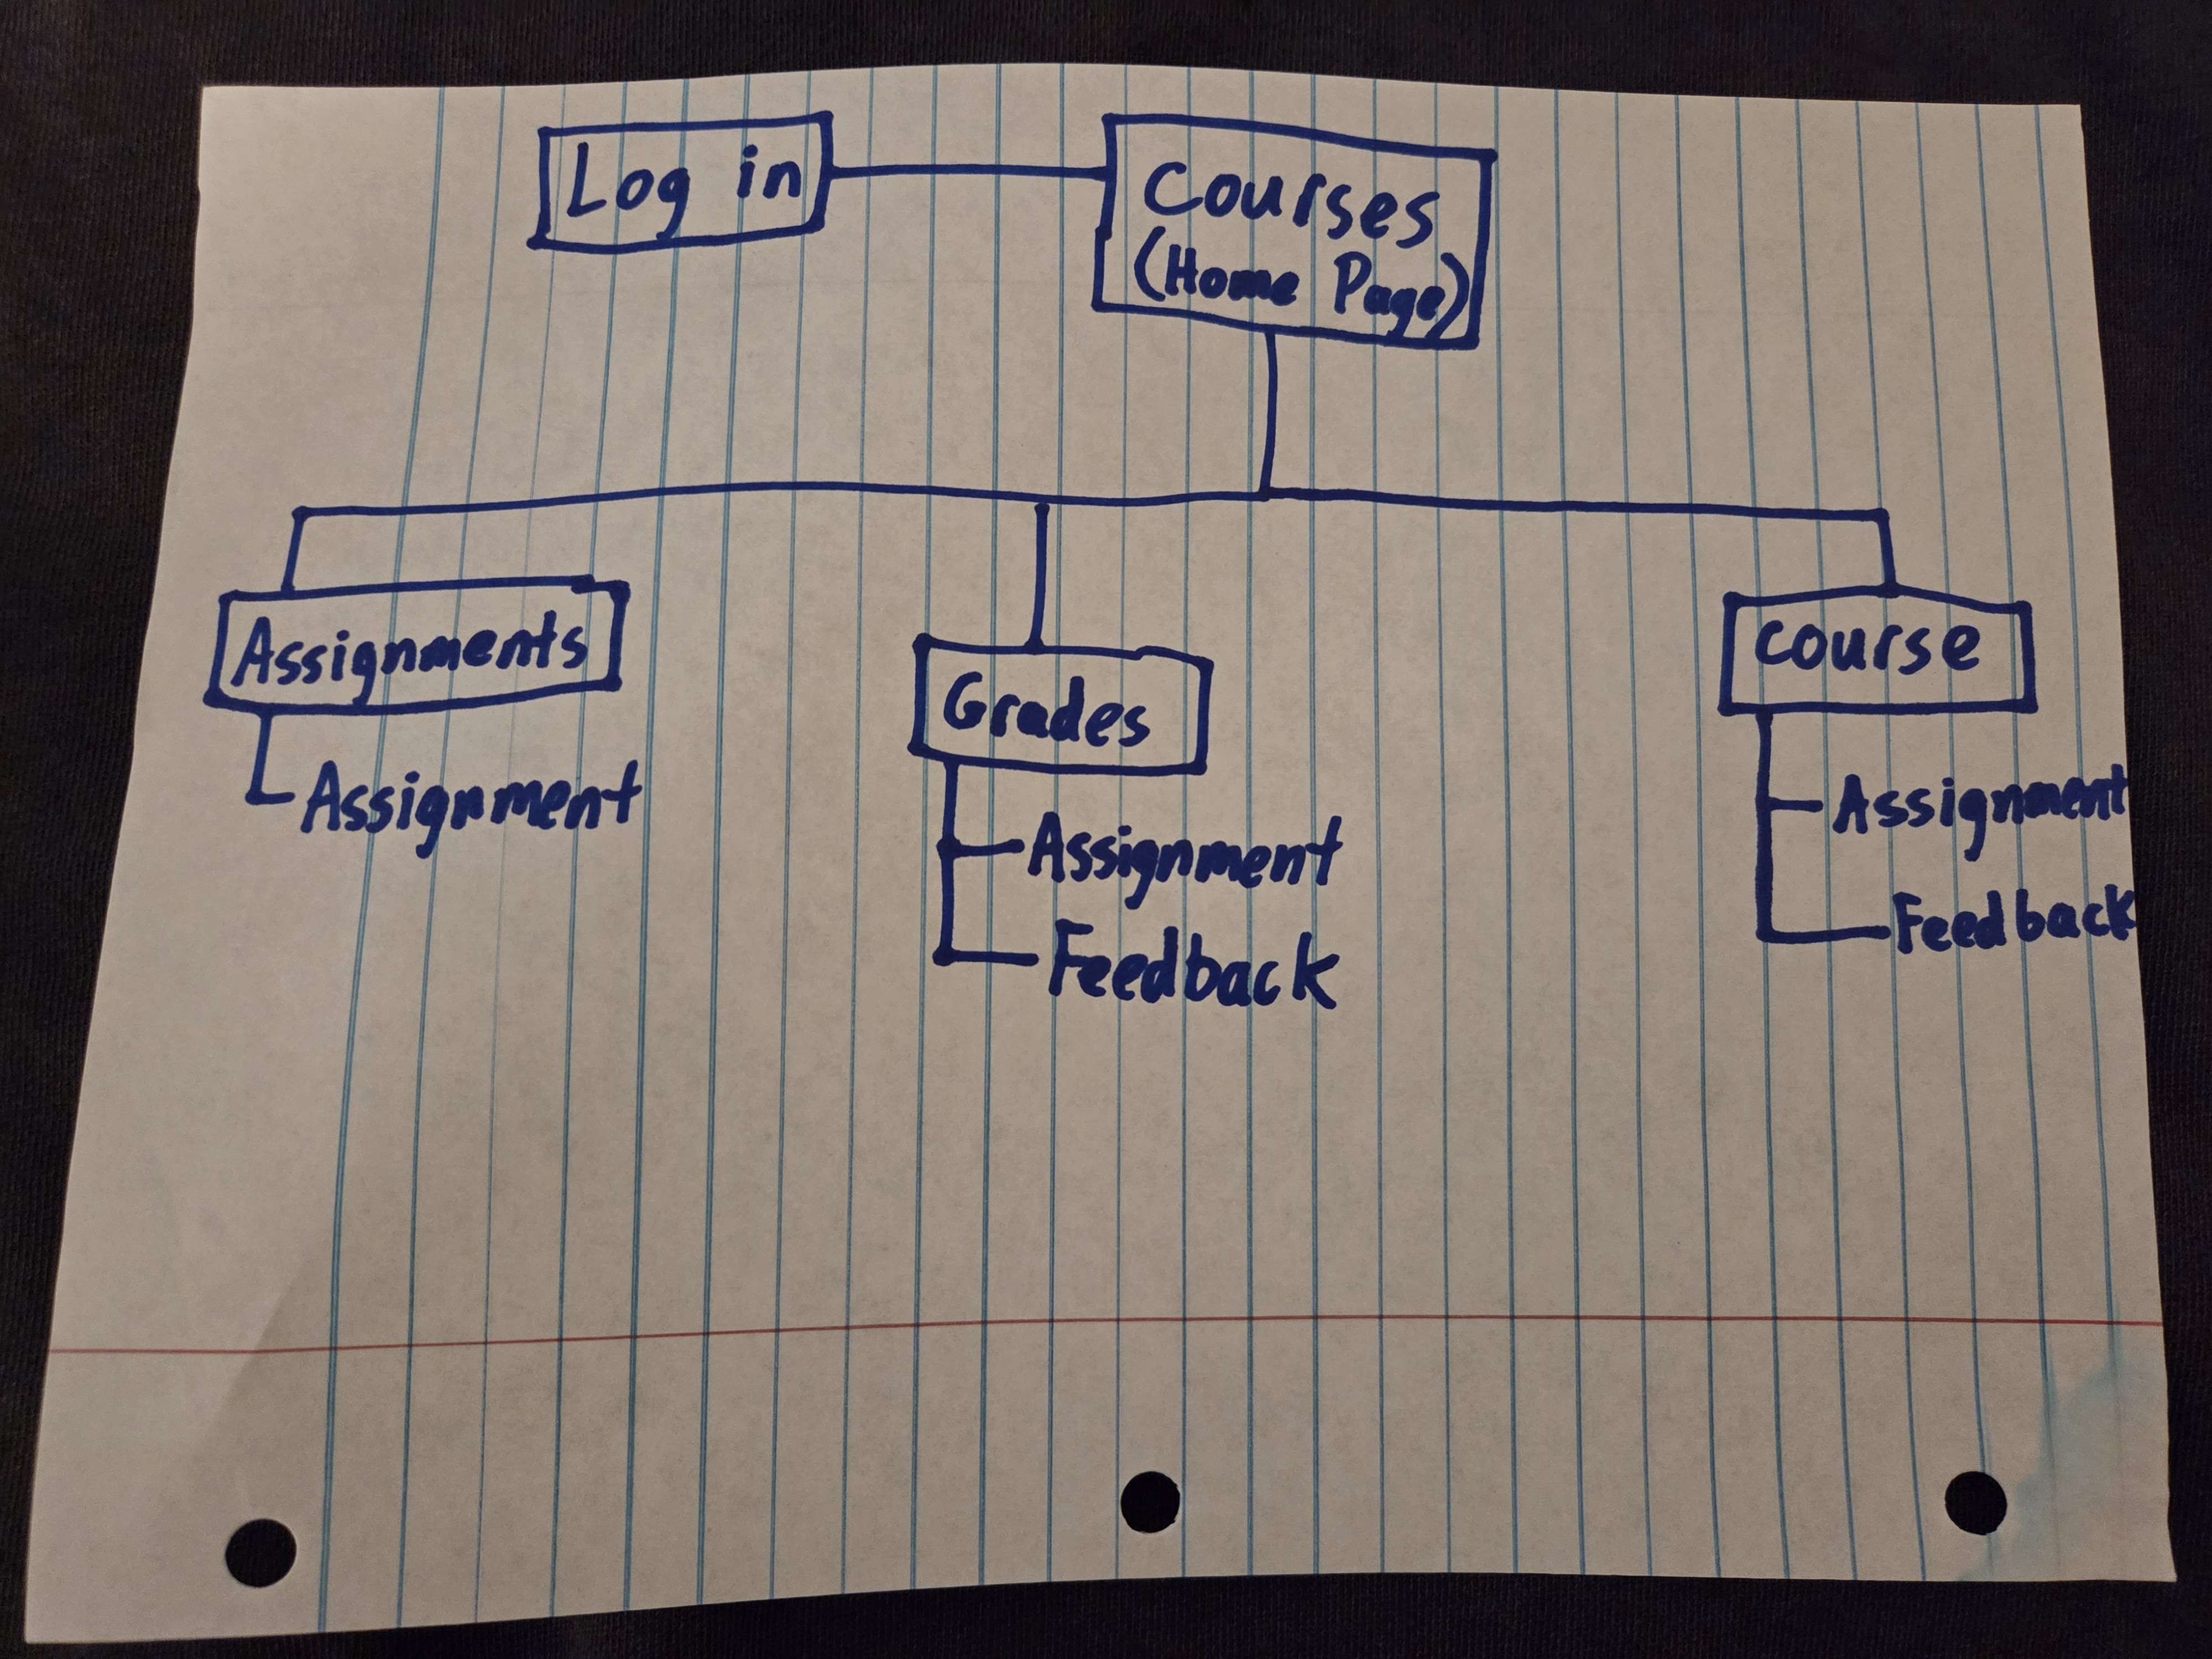 Log in
Courses
(Home Page)
Assignments
Assignment
Grades
Assignment
Feedback
Course
Assignment
Feedback